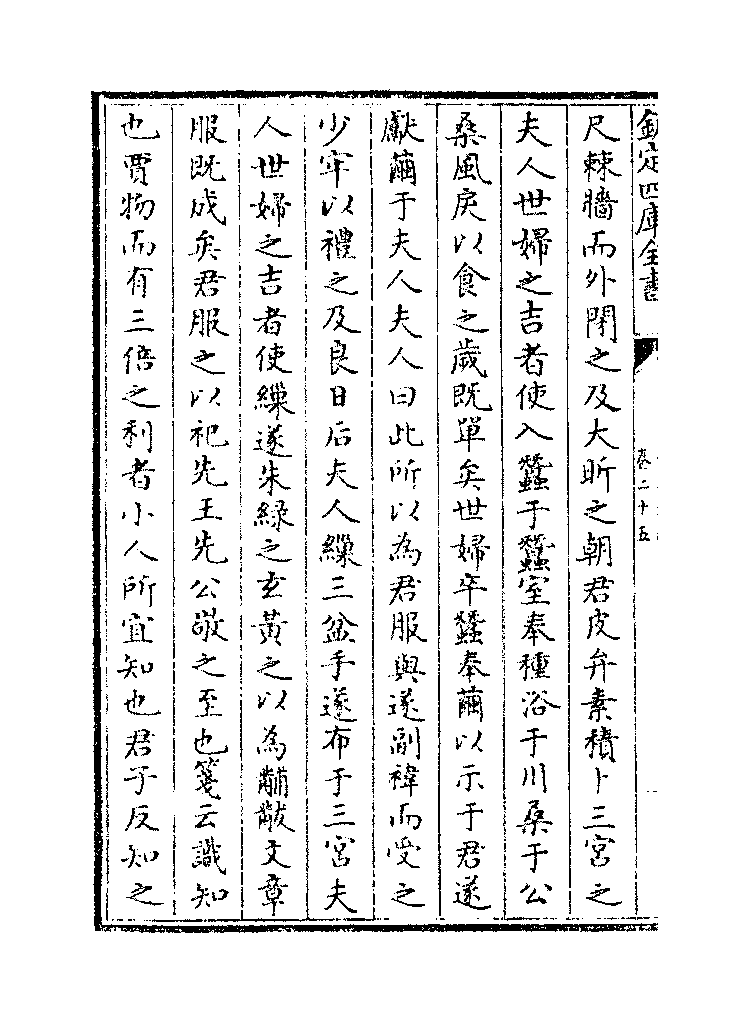 欽定四庫全書
卷二十五
尺棘牆而外閉之及大昕之朝君皮弁素積卜三宮之
夫人世婦之吉者使入蠶于蠶室奉種浴于川桑于公
桑風戾以食之歲既單矣世婦卒蠶奉繭以示于君遂
獻繭于夫人夫人曰此所以為君服與遂副褘而受之
少牢以禮之及良日后夫人繅三盆手遂布于三宮夫
人世婦之吉者使繅遂朱緑之玄黃之以為黼黻文章
服既成矣君服之以祀先王先公敬之至也箋云識知
也賈物而有三倍之利者小人所宜知也君子反知之